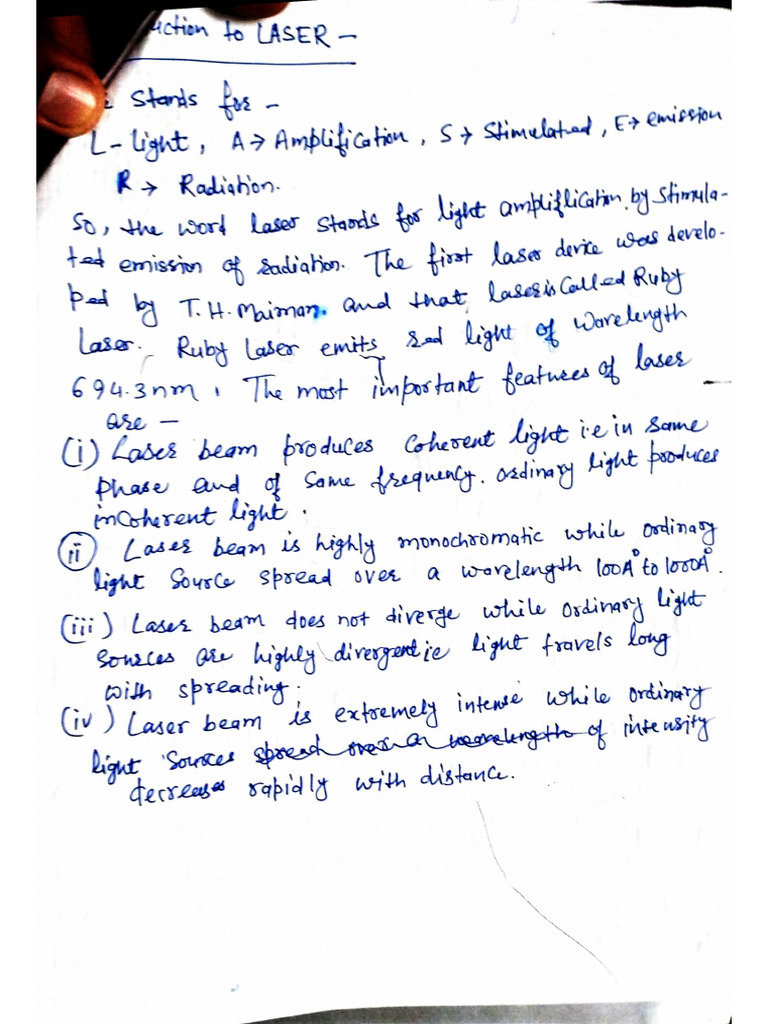 uction to LASER -
Stands for -
L - light, A → Amplification, S → Stimulated, E → emission
R → Radiation.
So, the word laser stands for light amplification by stimula-
ted emission of radiation. The first laser device was develo-
ped by T.H. Maiman. and that laser is called Ruby
Laser. Ruby Laser emits red light of wavelength
694.3nm. The most important features of laser
are -
(i) Laser beam produces coherent light i.e in same
phase and of same frequency. ordinary light produces
incoherent light.
(ii) Laser beam is highly monochromatic while ordinary
light source spread over a wavelength 100A° to 1000A°.
(iii) Laser beam does not diverge while ordinary light
sources are highly divergent ie light travels long
with spreading.
(iv) Laser beam is extremely intense while ordinary
light sources spread over a wavelength of intensity
decreases rapidly with distance.